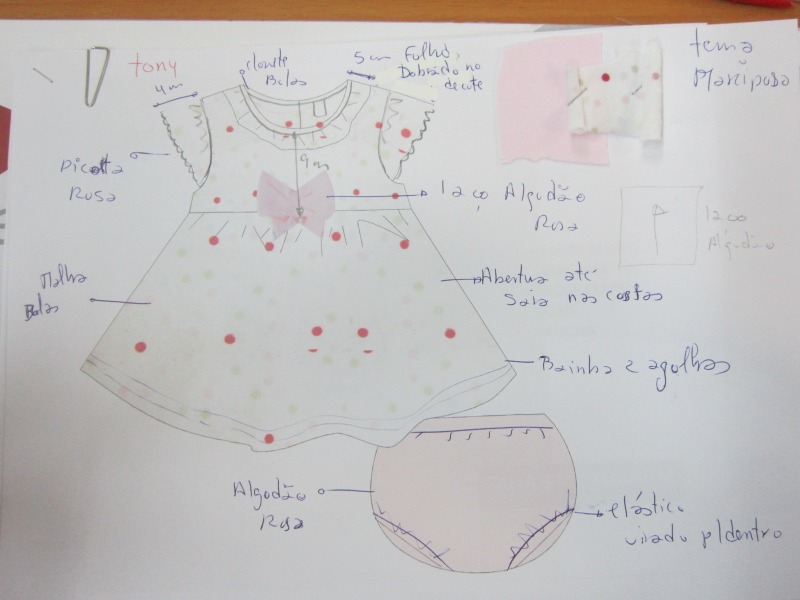 tony
4 cm
clorete
Bolas
5 cm
Folho,
Dobrado no
decote
tema
Mariposa
9 cm
Picotta
Rosa
1 laço Algodão
Rosa
laço
Algodão
Malha
Bolas
Abertura até
Saia nas costas
Bainha 2 agolhas
Algodão
Rosa
elástico
virado p/dentro